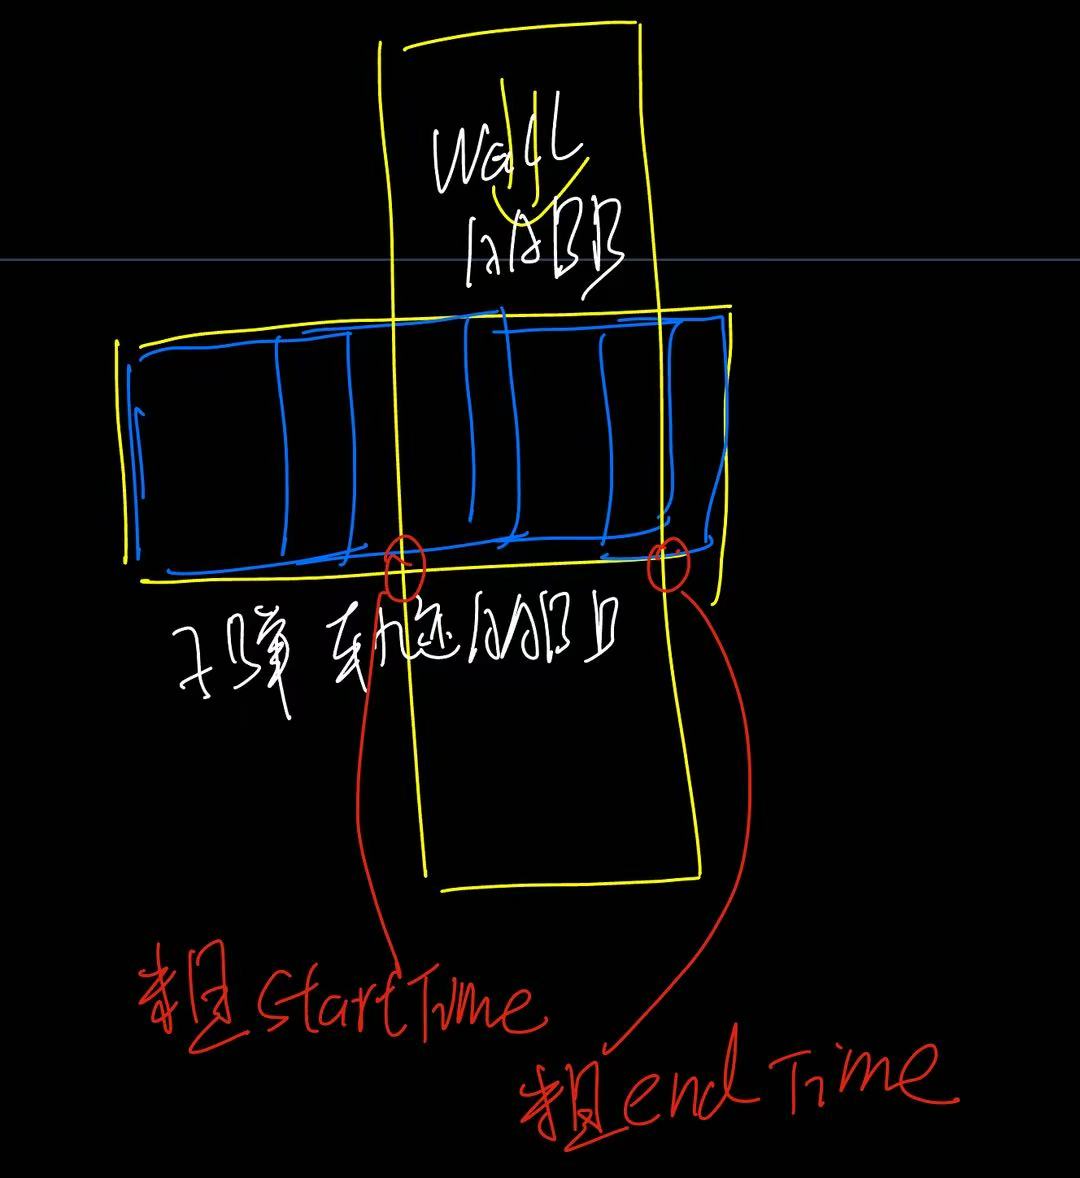 Wall
AABB
子弹 轨迹AABB
粗 startTime
粗 endTime